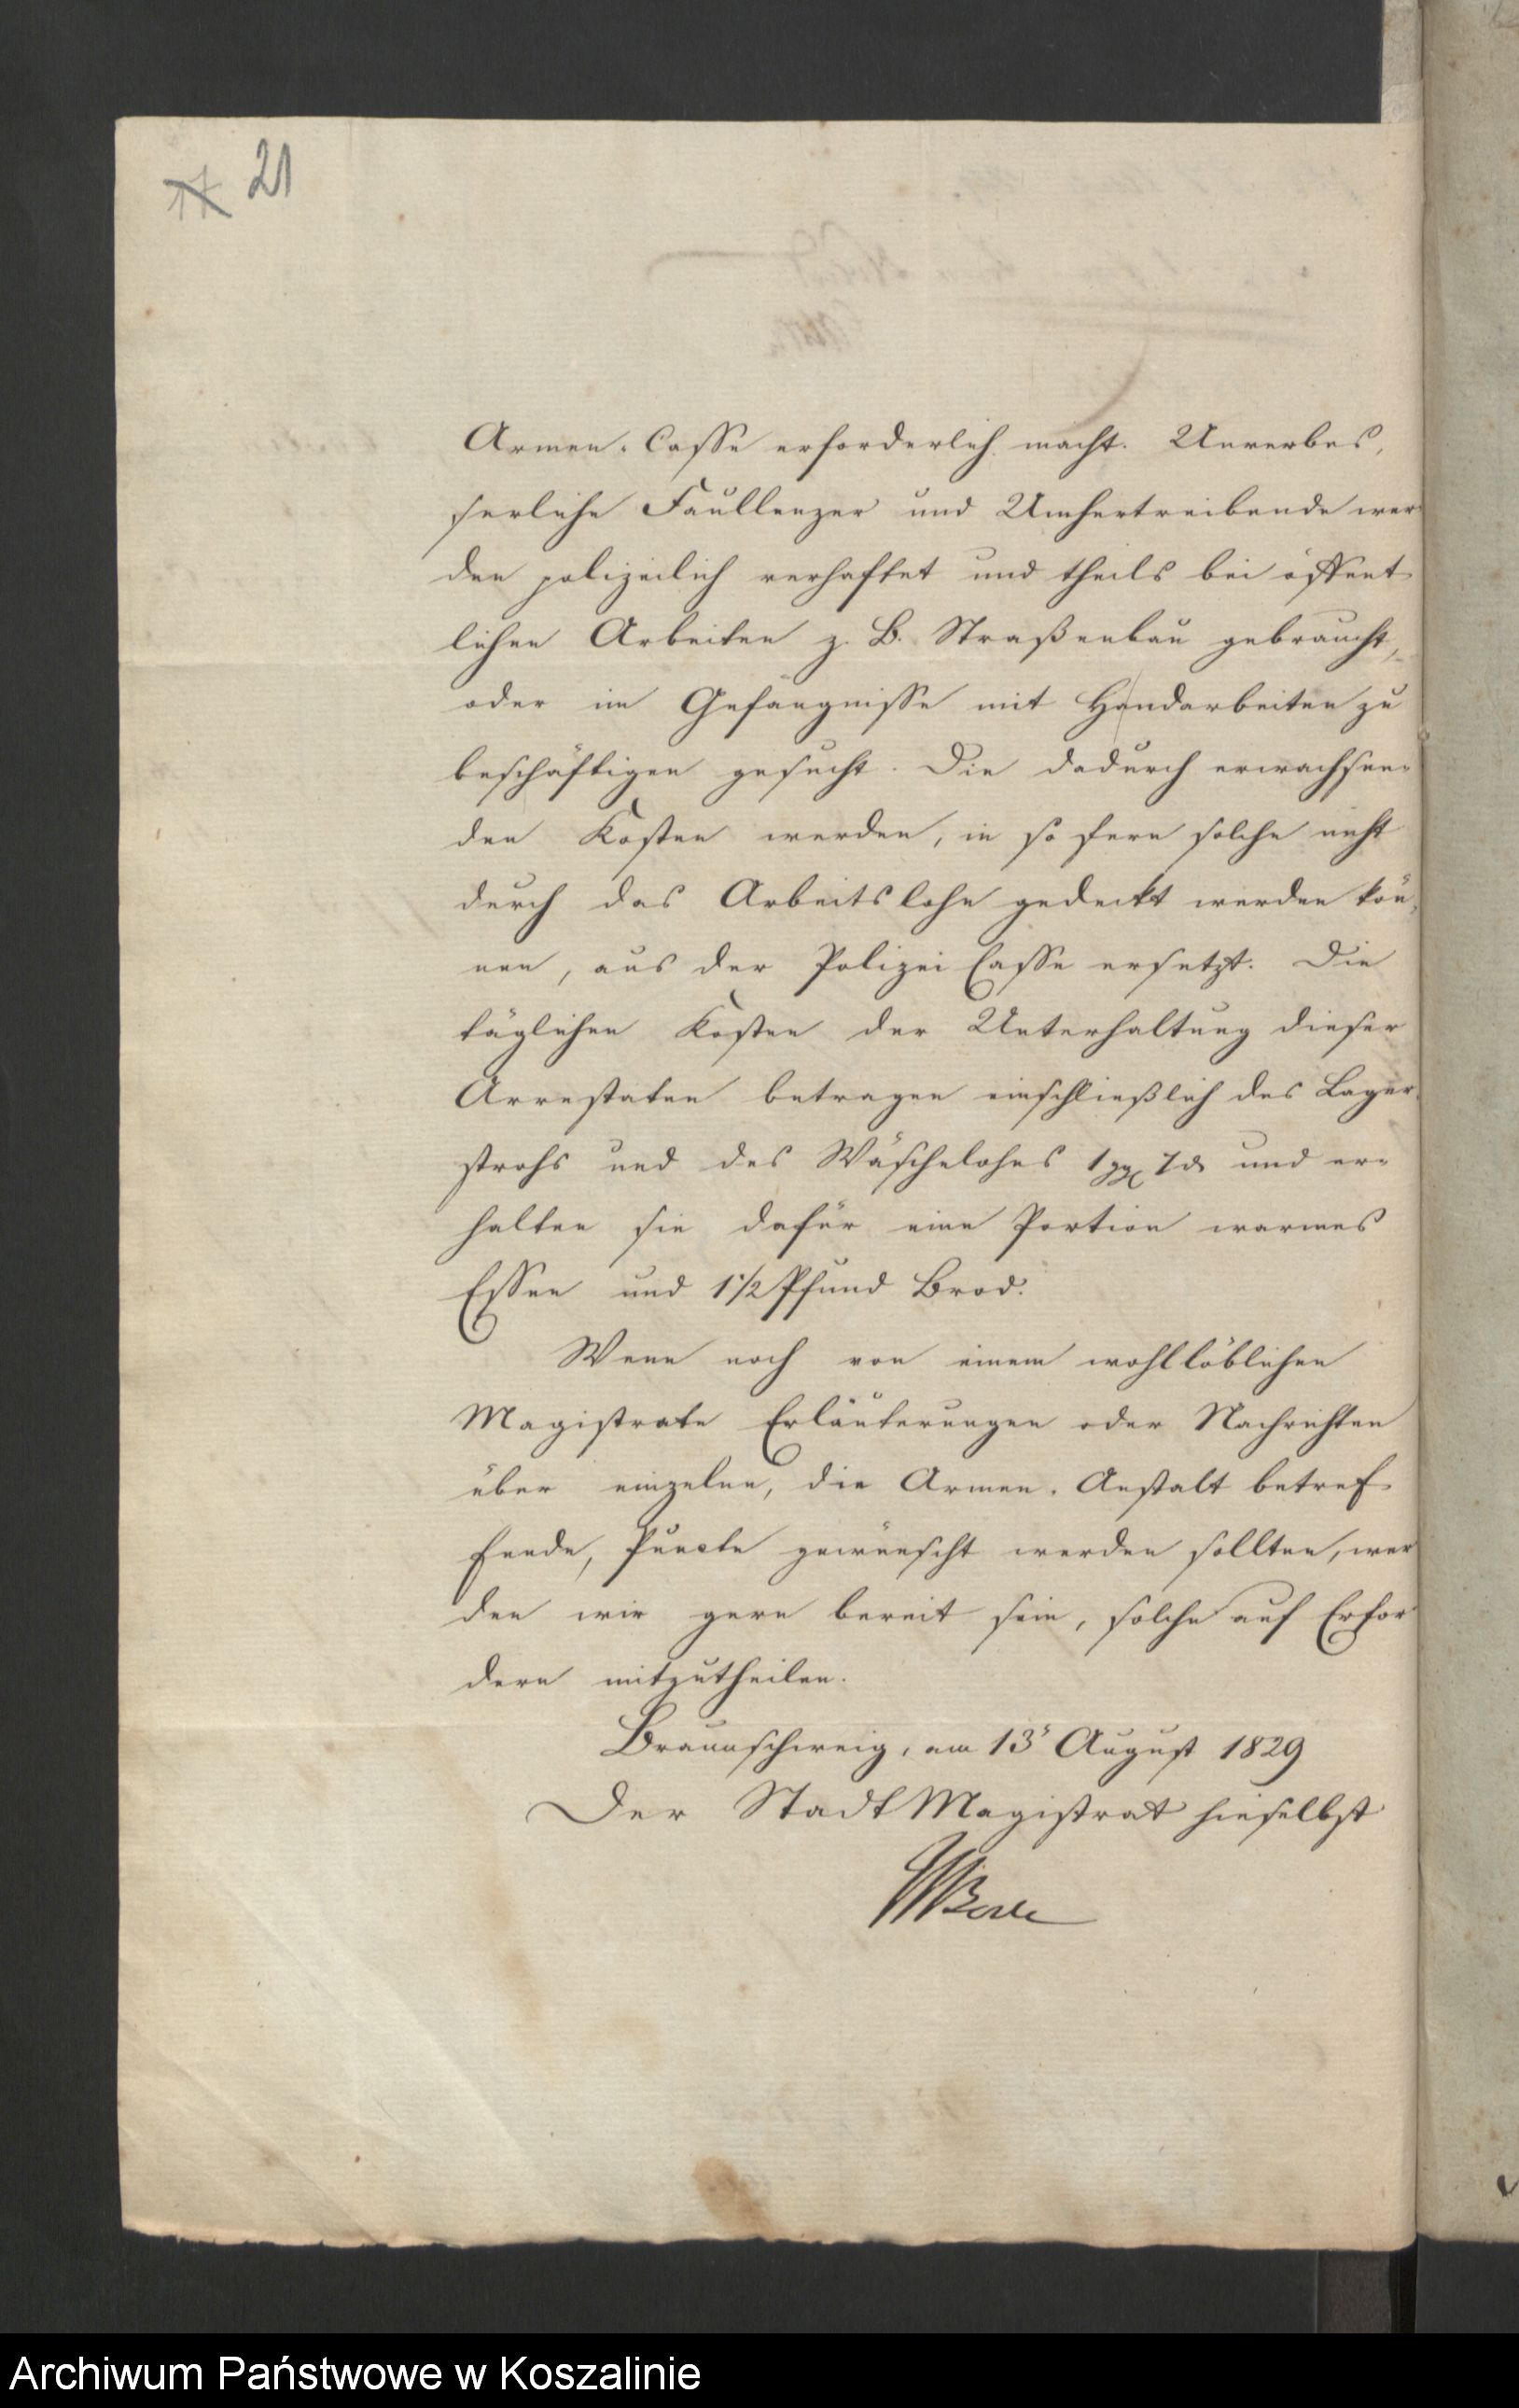 21
Armen-Casse erforderlich macht. Unverbes-
serliche Faullenzer und Umhertreibende wer
den polizeilich verhaftet und theils bei öffent
lichen Arbeiten z. B. Straßenbau gebraucht,
oder im Gefängnisse mit Handarbeiten zu
beschäftigen gesucht. Die dadurch erwachsen-
den Kosten werden, in so fern solche nicht
durch das Arbeitslohn gedeckt werden kön-
nen, aus der Polizei Casse ersetzt. Die
täglichen Kosten der Unterhaltung dieser
Arrestaten betragen einschließlich des Lager
strohs und des Wäschelohnes 1 ggr 7 d und er-
halten sie dafür eine Portion warmes
Essen und 1 1/2 Pfund Brod.
Wenn noch von einem wohllöblichen
Magistrate Erläuterungen oder Nachrichten
über einzelne, die Armen-Anstalt betref-
fende, Puncte gewünscht werden sollten, wer
den wir gern bereit sein, solche auf Erfor
dern mitzutheilen.
Braunschweig, am 13 August 1829
Der Stadt Magistrat hieselbst
Archiwum Państwowe w Koszalinie